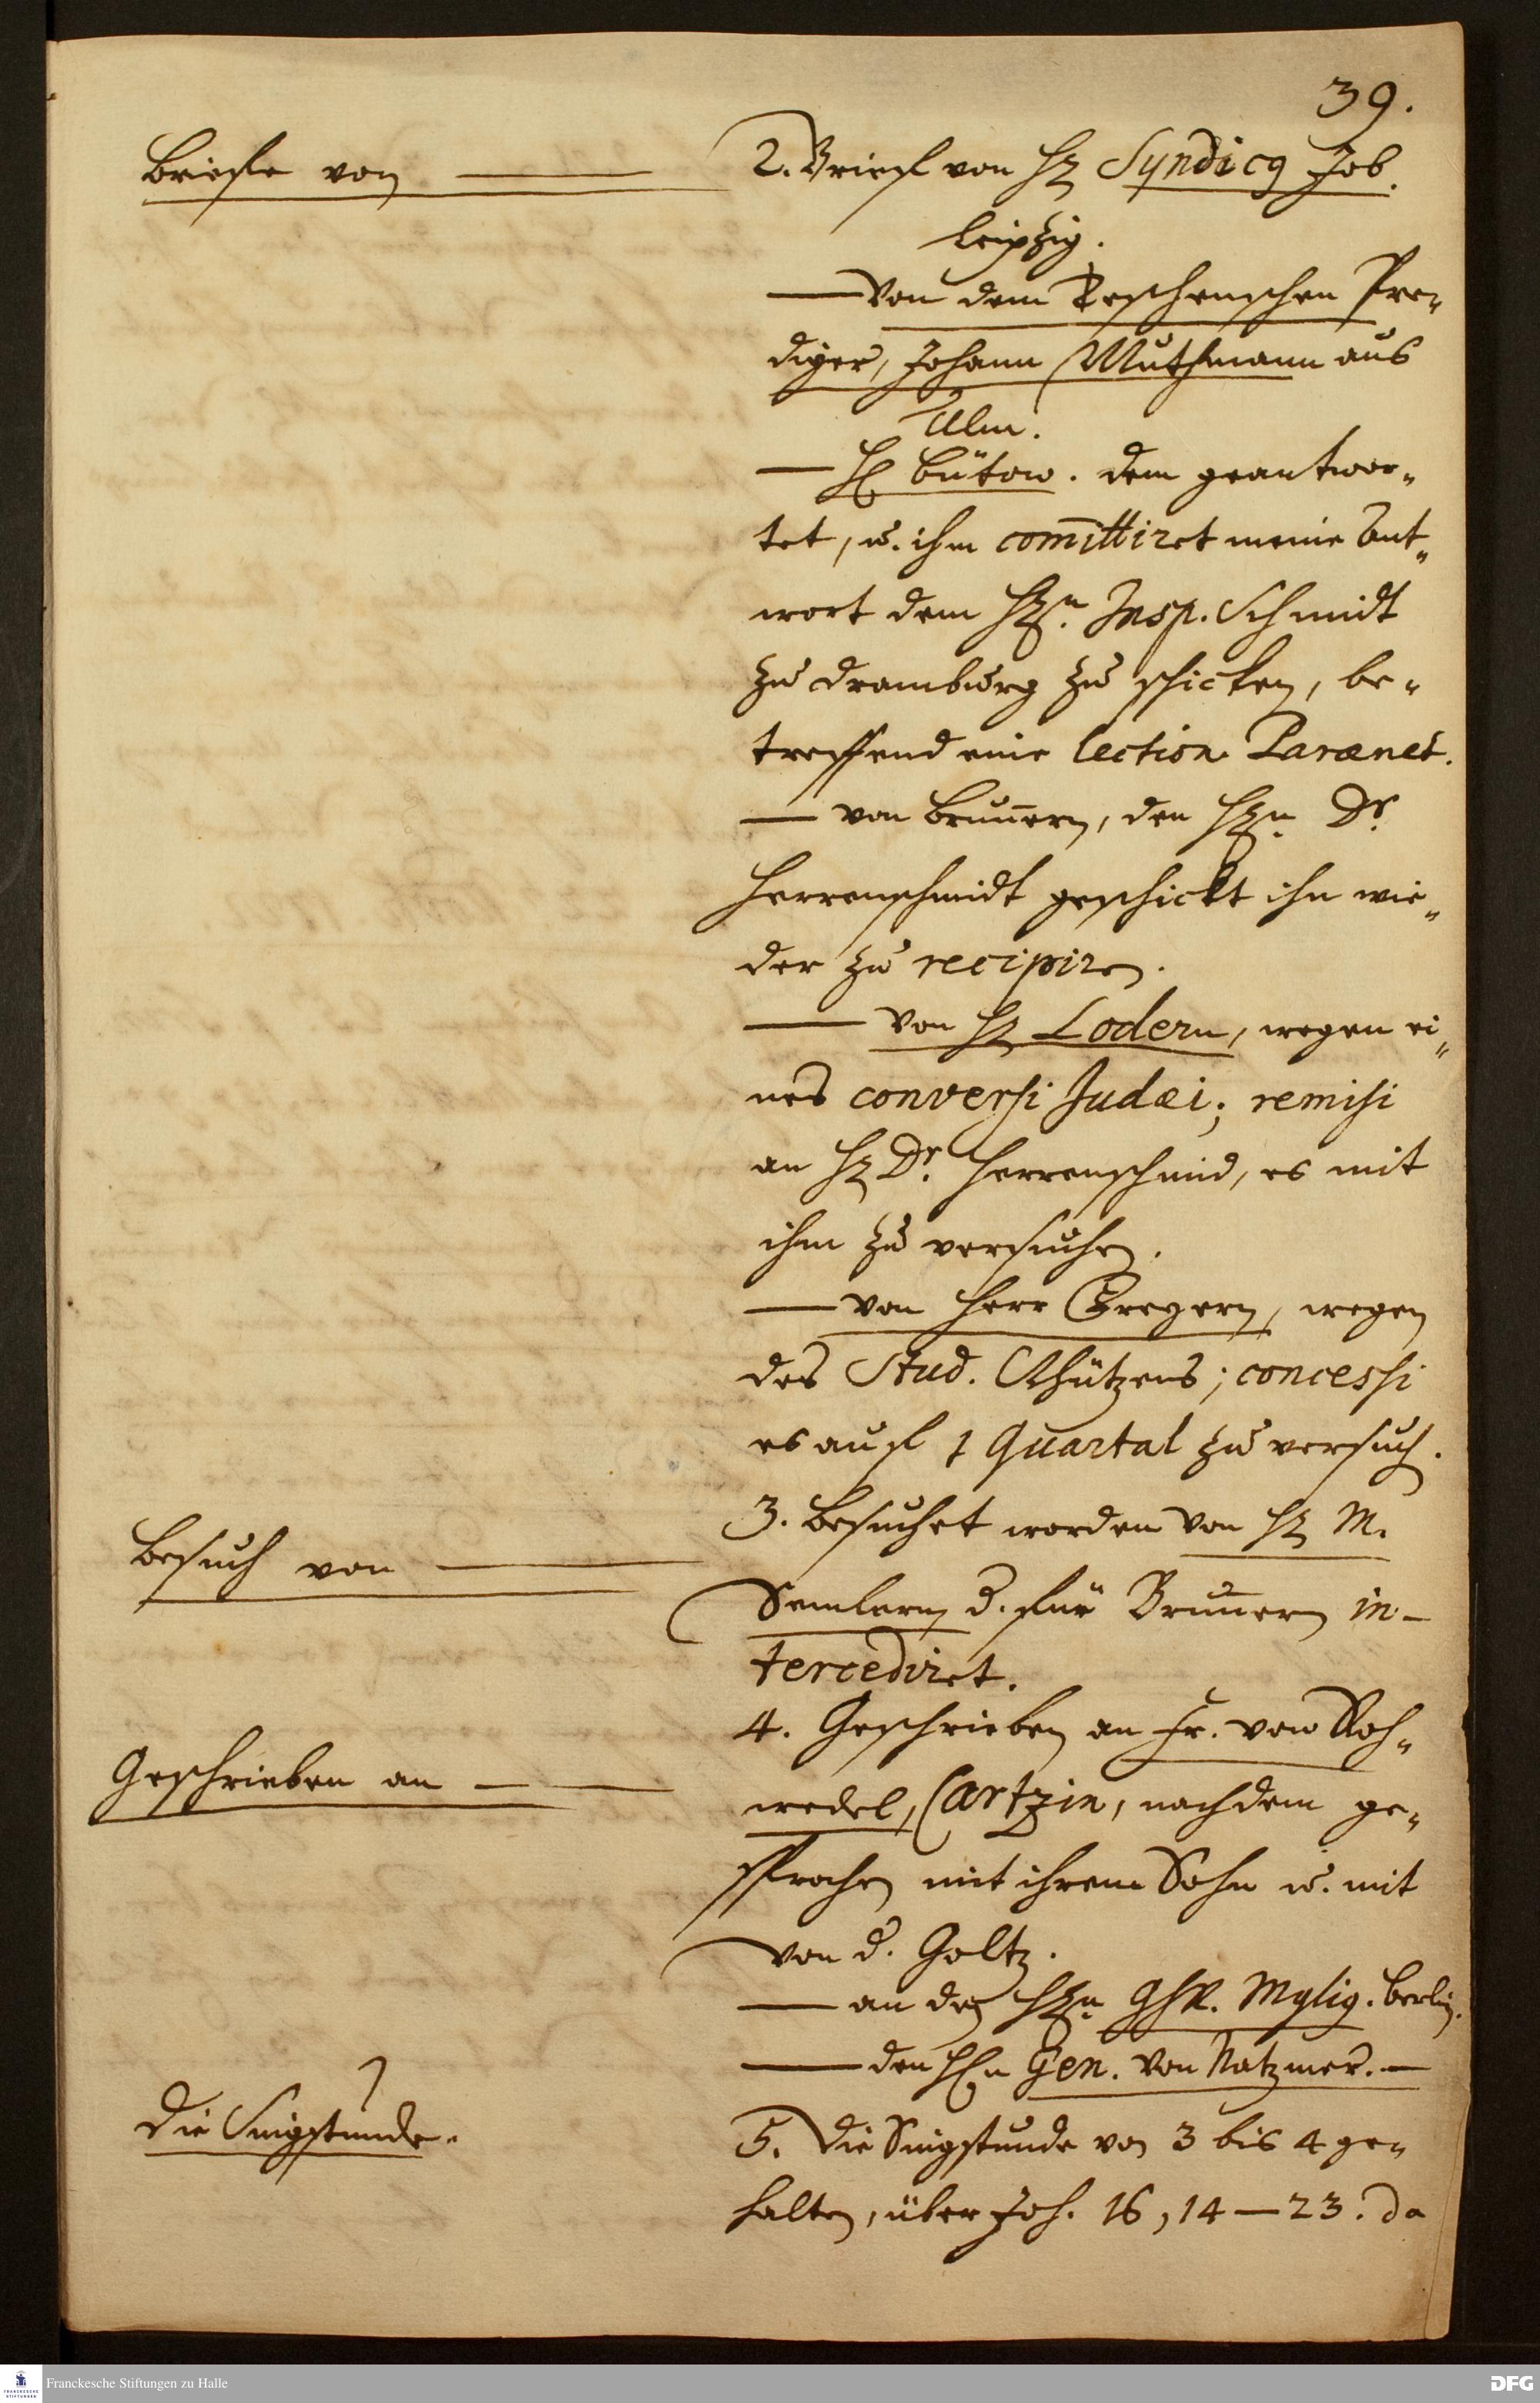 39.
Briefe von
2. Brief von H. Syndicq Job.
Leipzig.
Von dem Teschenschen Pre-
diger, Johann Muthmann aus
Ulm.
H Bütow. dem geantwor-
tet, u. ihm com̄ittiret meine Ant-
wort dem H.n Insp. Schmidt
zu Dramburg zu schicken, be-
treffend eine lection Parænet.
von Brun̄ern, den H.n Dr.
Herrenschmidt geschickt ihn wie-
der zu recipiren.
von H. Lodern, wegen ei-
nes conversi Judæi; remisi
an H. Dr. Herrenschmid, es mit
ihm zu versuchen.
von Herr Gregern, wegen
des Stud. Schützens; concessi
es auf 1 Quartal zu versuch.
Besuch von
3. Besuchet worden von H. M.
Semlern d. für Brun̄ern in-
tercediret.
Geschrieben an
4. Geschrieben an Fr. von Roh-
wedel, Cartzin, nachdem ge-
sprochen mit ihrem Sohn u. mit
von d. Goltz.
an den H.n GhR. Mylig. Berlin.
den H.n Gen. von Natzmer.
Die Singstunde.
5. Die Singstunde von 3 bis 4 ge-
halten, über Joh. 16, 14–23. da
Franckesche Stiftungen zu Halle
DFG